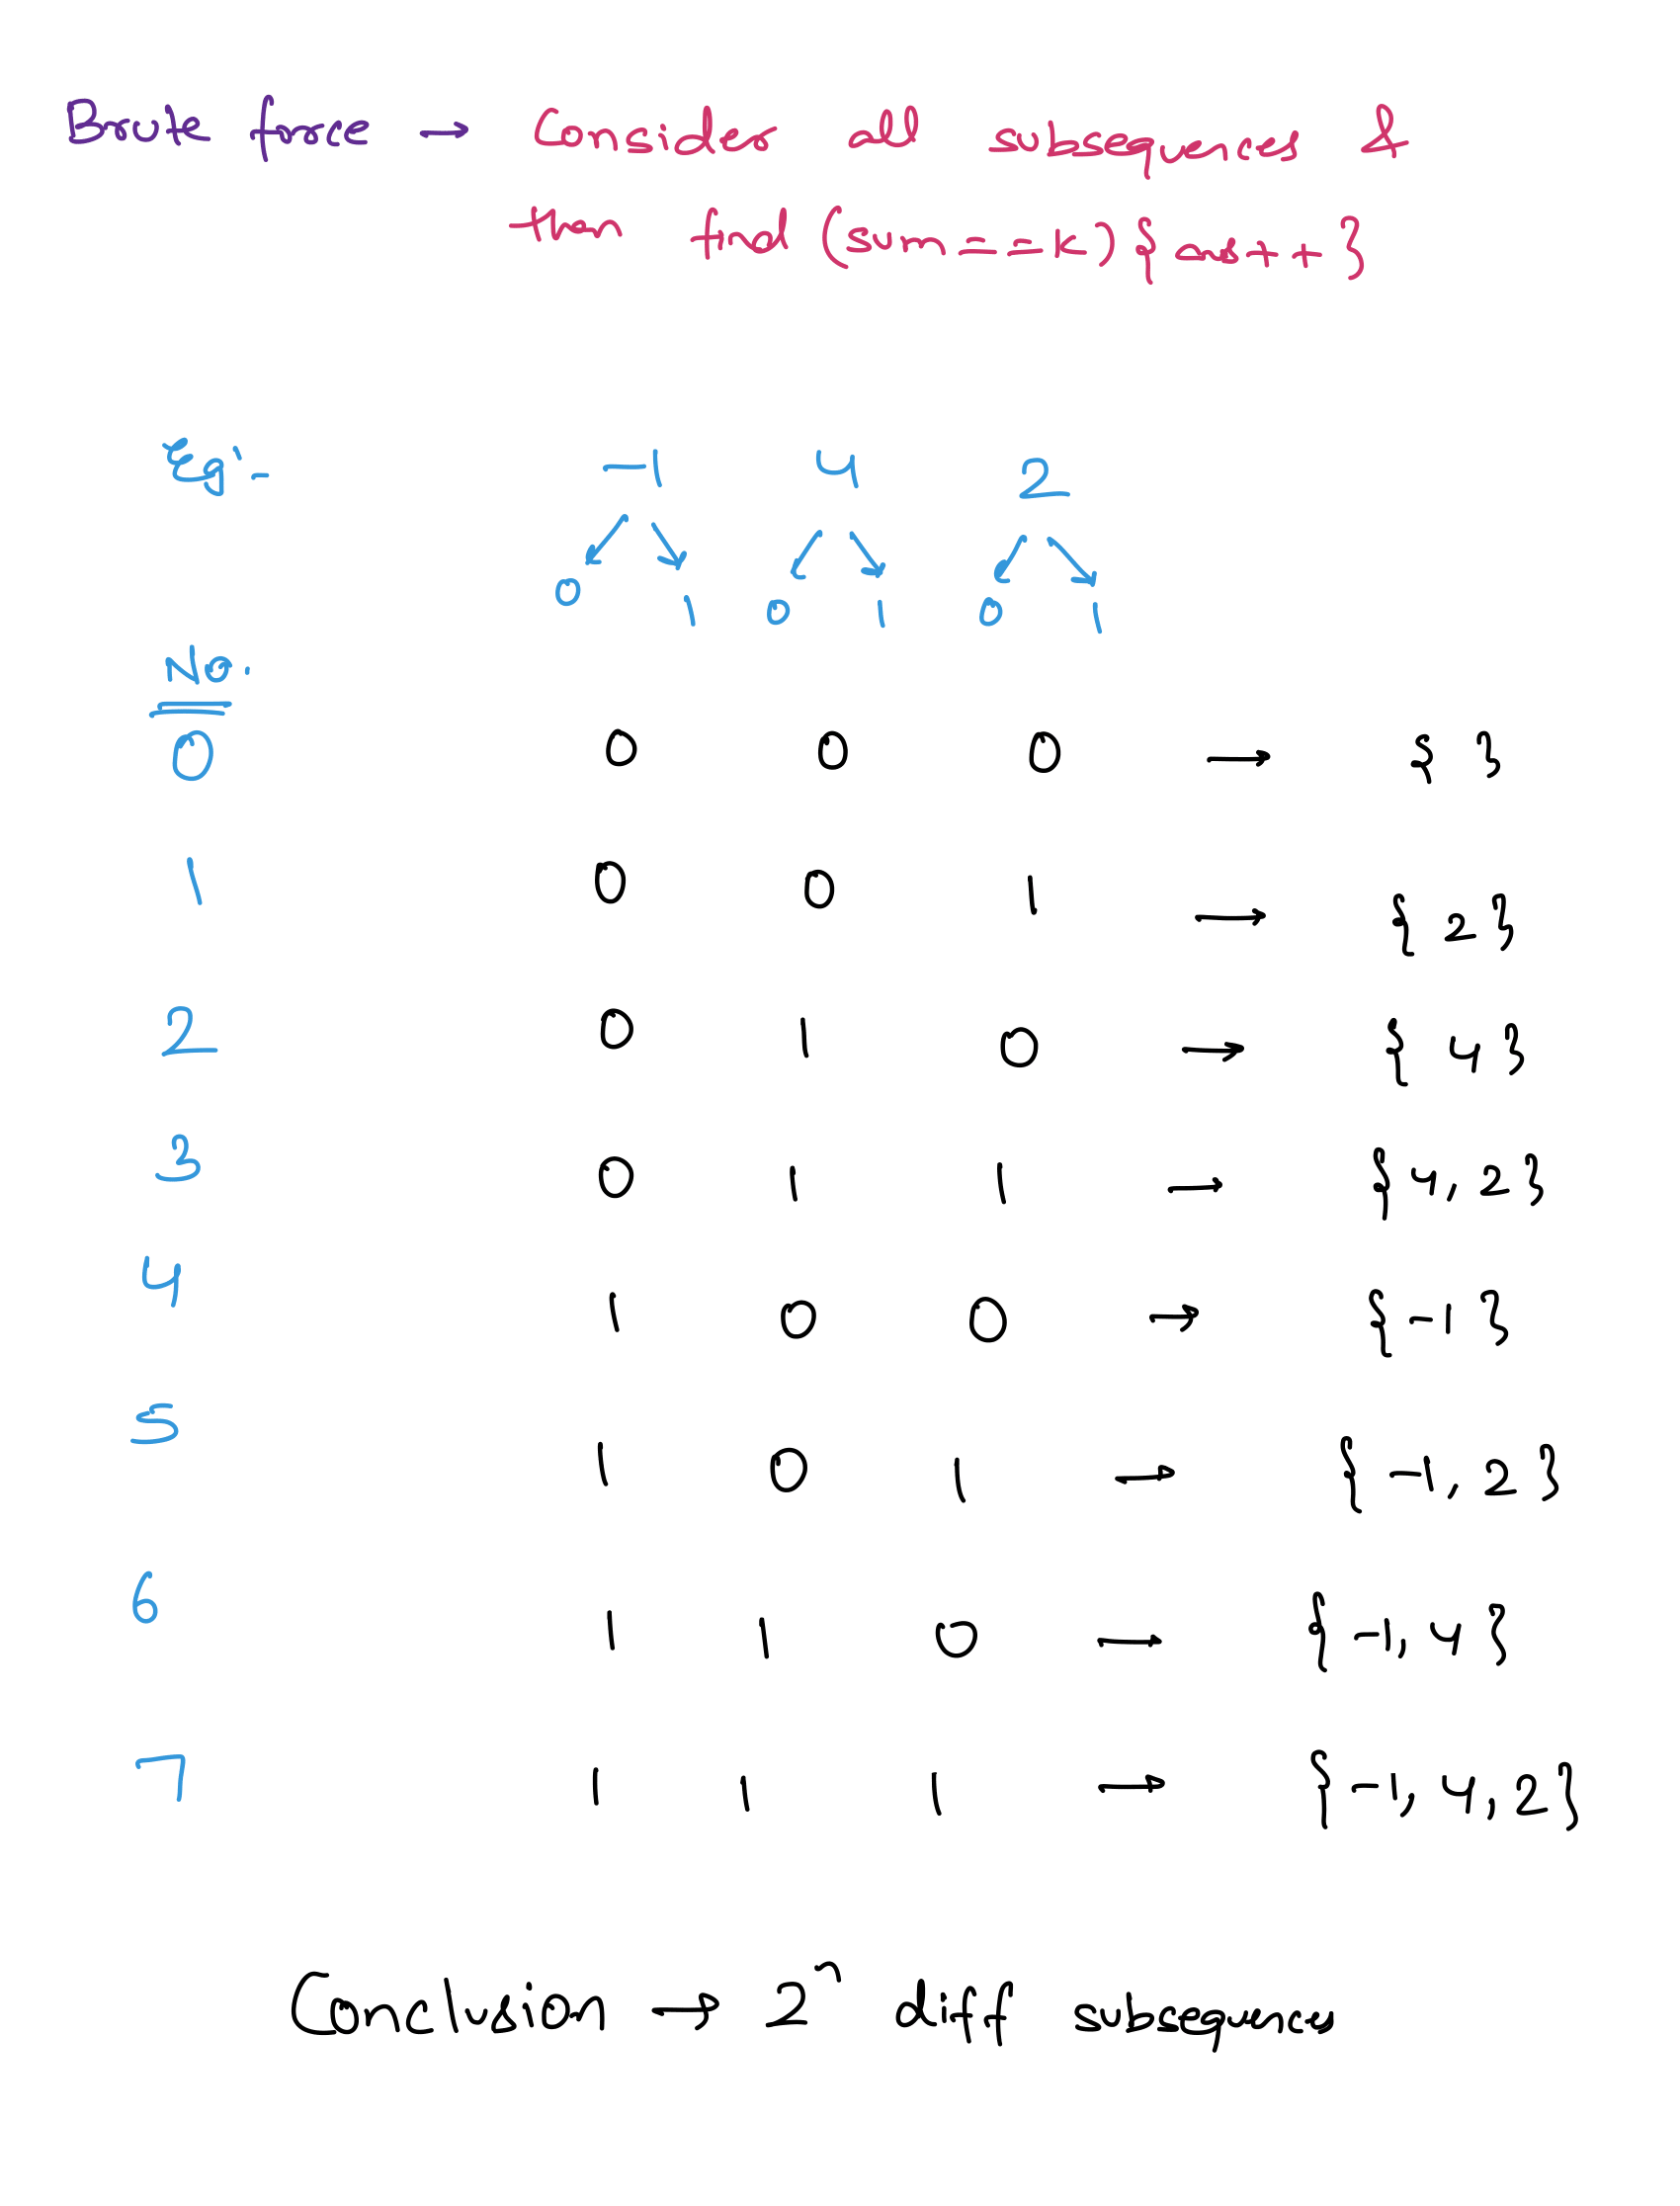 Brute force → Consider all subsequences &
then find (sum==k) {ans++}
Eg:- -1 4 2
0 1 0 1 0 1
No.
0 0 0 0 → { }
1 0 0 1 → { 2 }
2 0 1 0 → { 4 }
3 0 1 1 → { 4, 2 }
4 1 0 0 → { -1 }
5 1 0 1 → { -1, 2 }
6 1 1 0 → { -1, 4 }
7 1 1 1 → { -1, 4, 2 }
Conclusion → 2^n diff subsequences